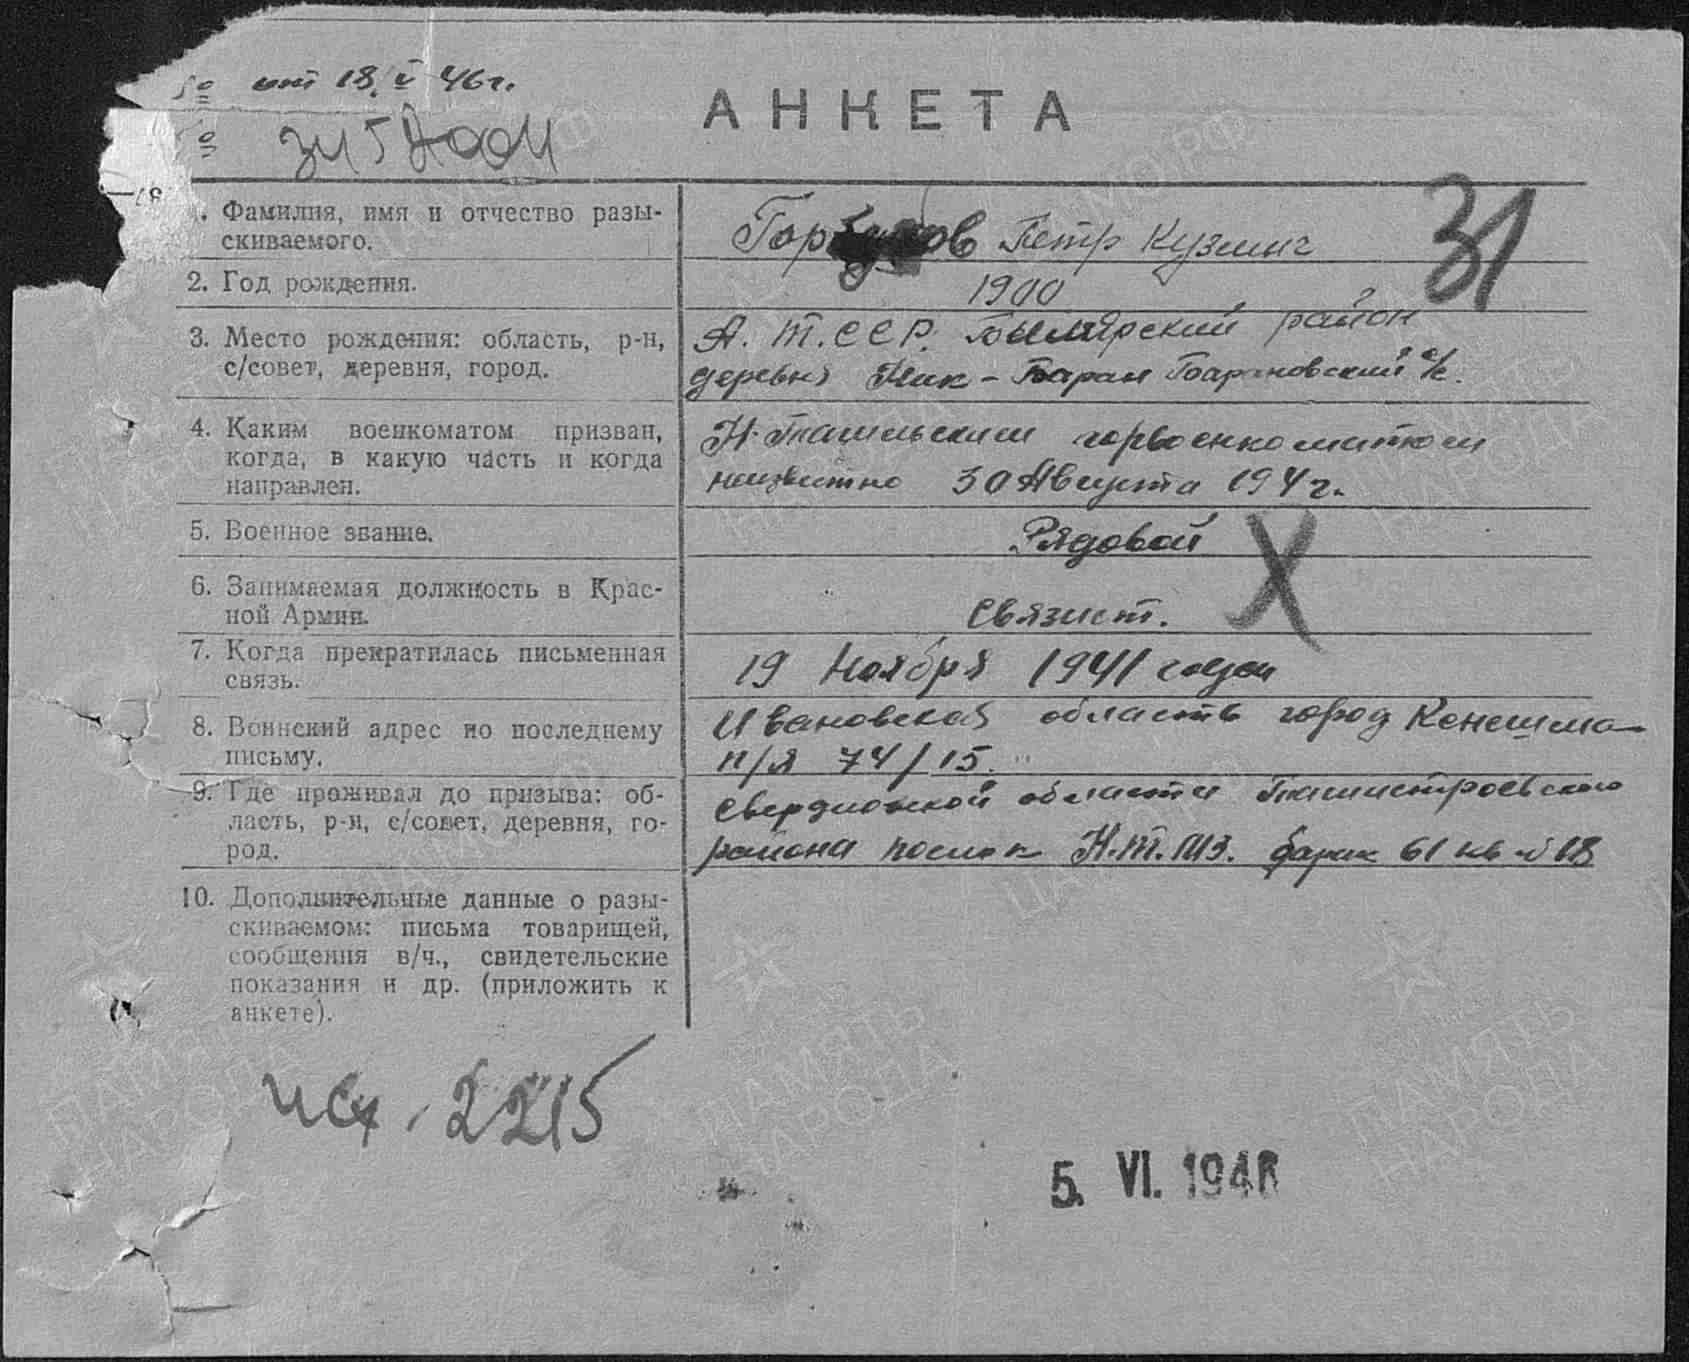 от 18. V 46г.
АНКЕТА
31
1. Фамилия, имя и отчество разы-
скиваемого.
Петр Кузмич
2. Год рождения.
1900
3. Место рождения: область, р-н,
с/совет, деревня, город.
А. Т. С С Р. Билярский район
деревня Ник-Баран Барановский с/с.
4. Каким военкоматом призван,
когда, в какую часть и когда
направлен.
Н-Тагильским горвоенкоматком
неизвестно 30 Августа 194 г.
5. Военное звание.
Рядовой
6. Занимаемая должность в Крас-
ной Армии.
Связист.
7. Когда прекратилась письменная
связь.
19 Ноября 1941 года
8. Воинский адрес по последнему
письму.
Ивановская область город Кенешма
п/я 74/15.
9. Где проживал до призыва: об-
ласть, р-н, с/совет, деревня, го-
род.
Свердловской области Тагилстроевского
района Н.Т.М.З. барак 61 кв № 18
10. Дополнительные данные о разы-
скиваемом: письма товарищей,
сообщения в/ч., свидетельские
показания и др. (приложить к
анкете).
исх. 2215
5. VI. 1946
ПАМЯТЬ
НАРОДА